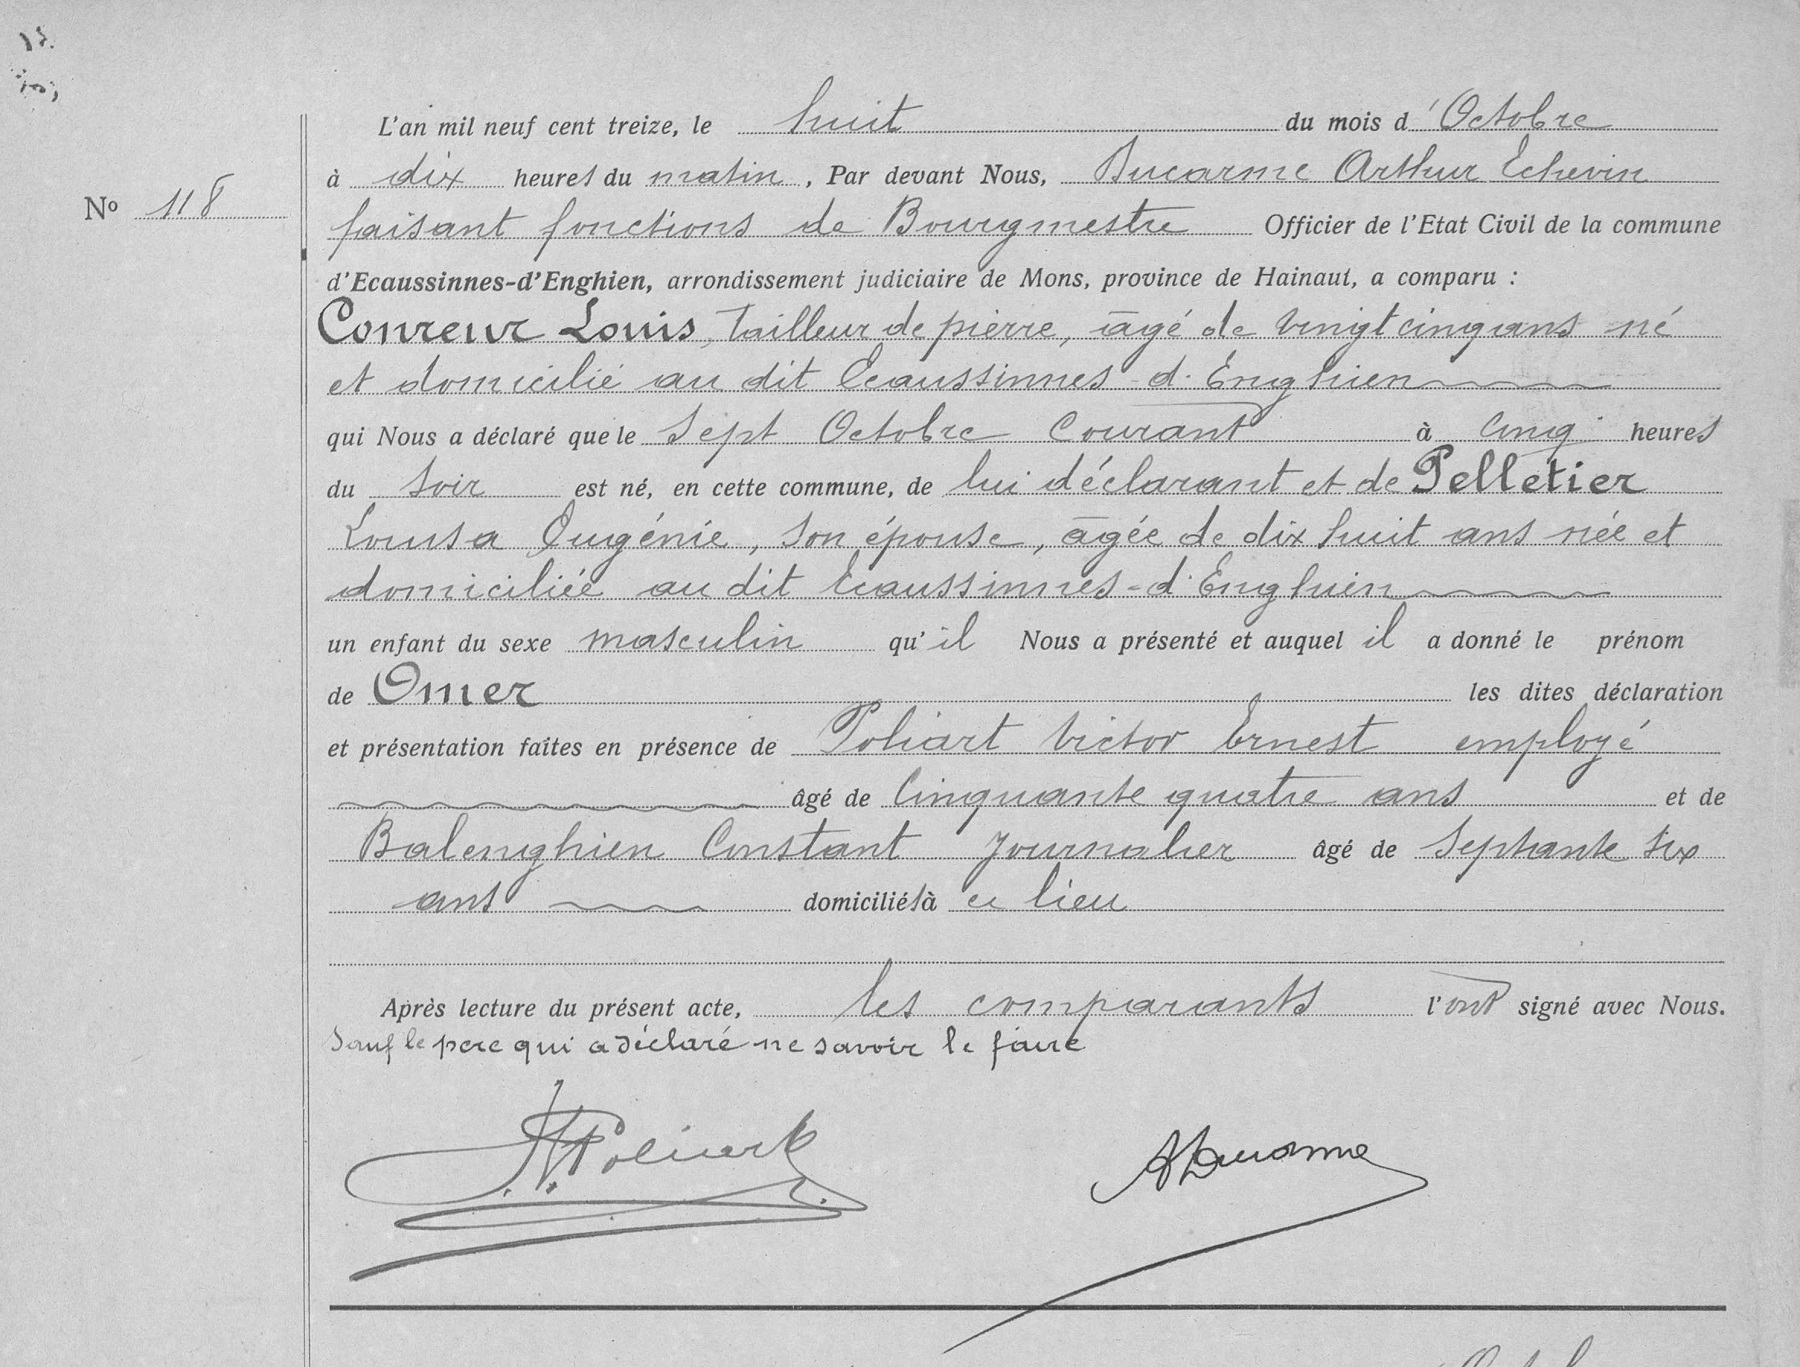 L'an mil neuf cent treize, le huit du mois d'Octobre
à dix heures du matin, Par devant Nous, Ducarme Arthur Echevin
No 118
faisant fonctions de Bourgmestre Officier de l'Etat Civil de la commune
d'Ecaussinnes-d'Enghien, arrondissement judiciaire de Mons, province de Hainaut, a comparu :
Conreur Louis, tailleur de pierre, âgé de vingt cinq ans né
et domicilié au dit Ecaussinnes-d'Enghien
qui Nous a déclaré que le sept Octobre Courant à cinq heures
du soir est né, en cette commune, de lui déclarant et de Pelletier
Lousa Eugénie, son épouse, âgée de dix huit ans née et
domiciliée au dit Ecaussinnes-d'Enghien
un enfant du sexe masculin qu'il Nous a présenté et auquel il a donné le prénom
de Omer les dites déclaration
et présentation faites en présence de Poliart Victor Ernest employé
âgé de Cinquante quatre ans et de
Balenghien Constant Journalier âgé de septante six
ans domiciliés à ce lieu
Après lecture du présent acte, les comparants l'ont signé avec Nous.
Sauf le père qui a déclaré ne savoir le faire
Poliart
ADucarme